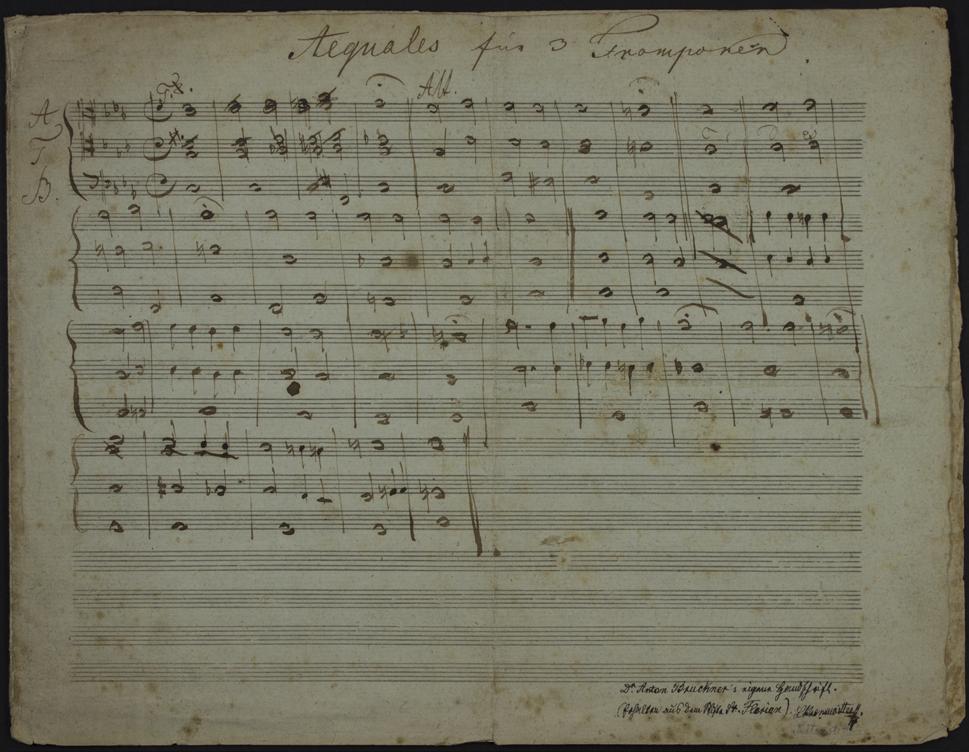 Aequales für 3 Tromponen
T. A.
Alt.
A
T.
B.
Dr. Anton Bruckner's eigene Handschrift.
(Erhalten aus dem Stifte St. Florian).